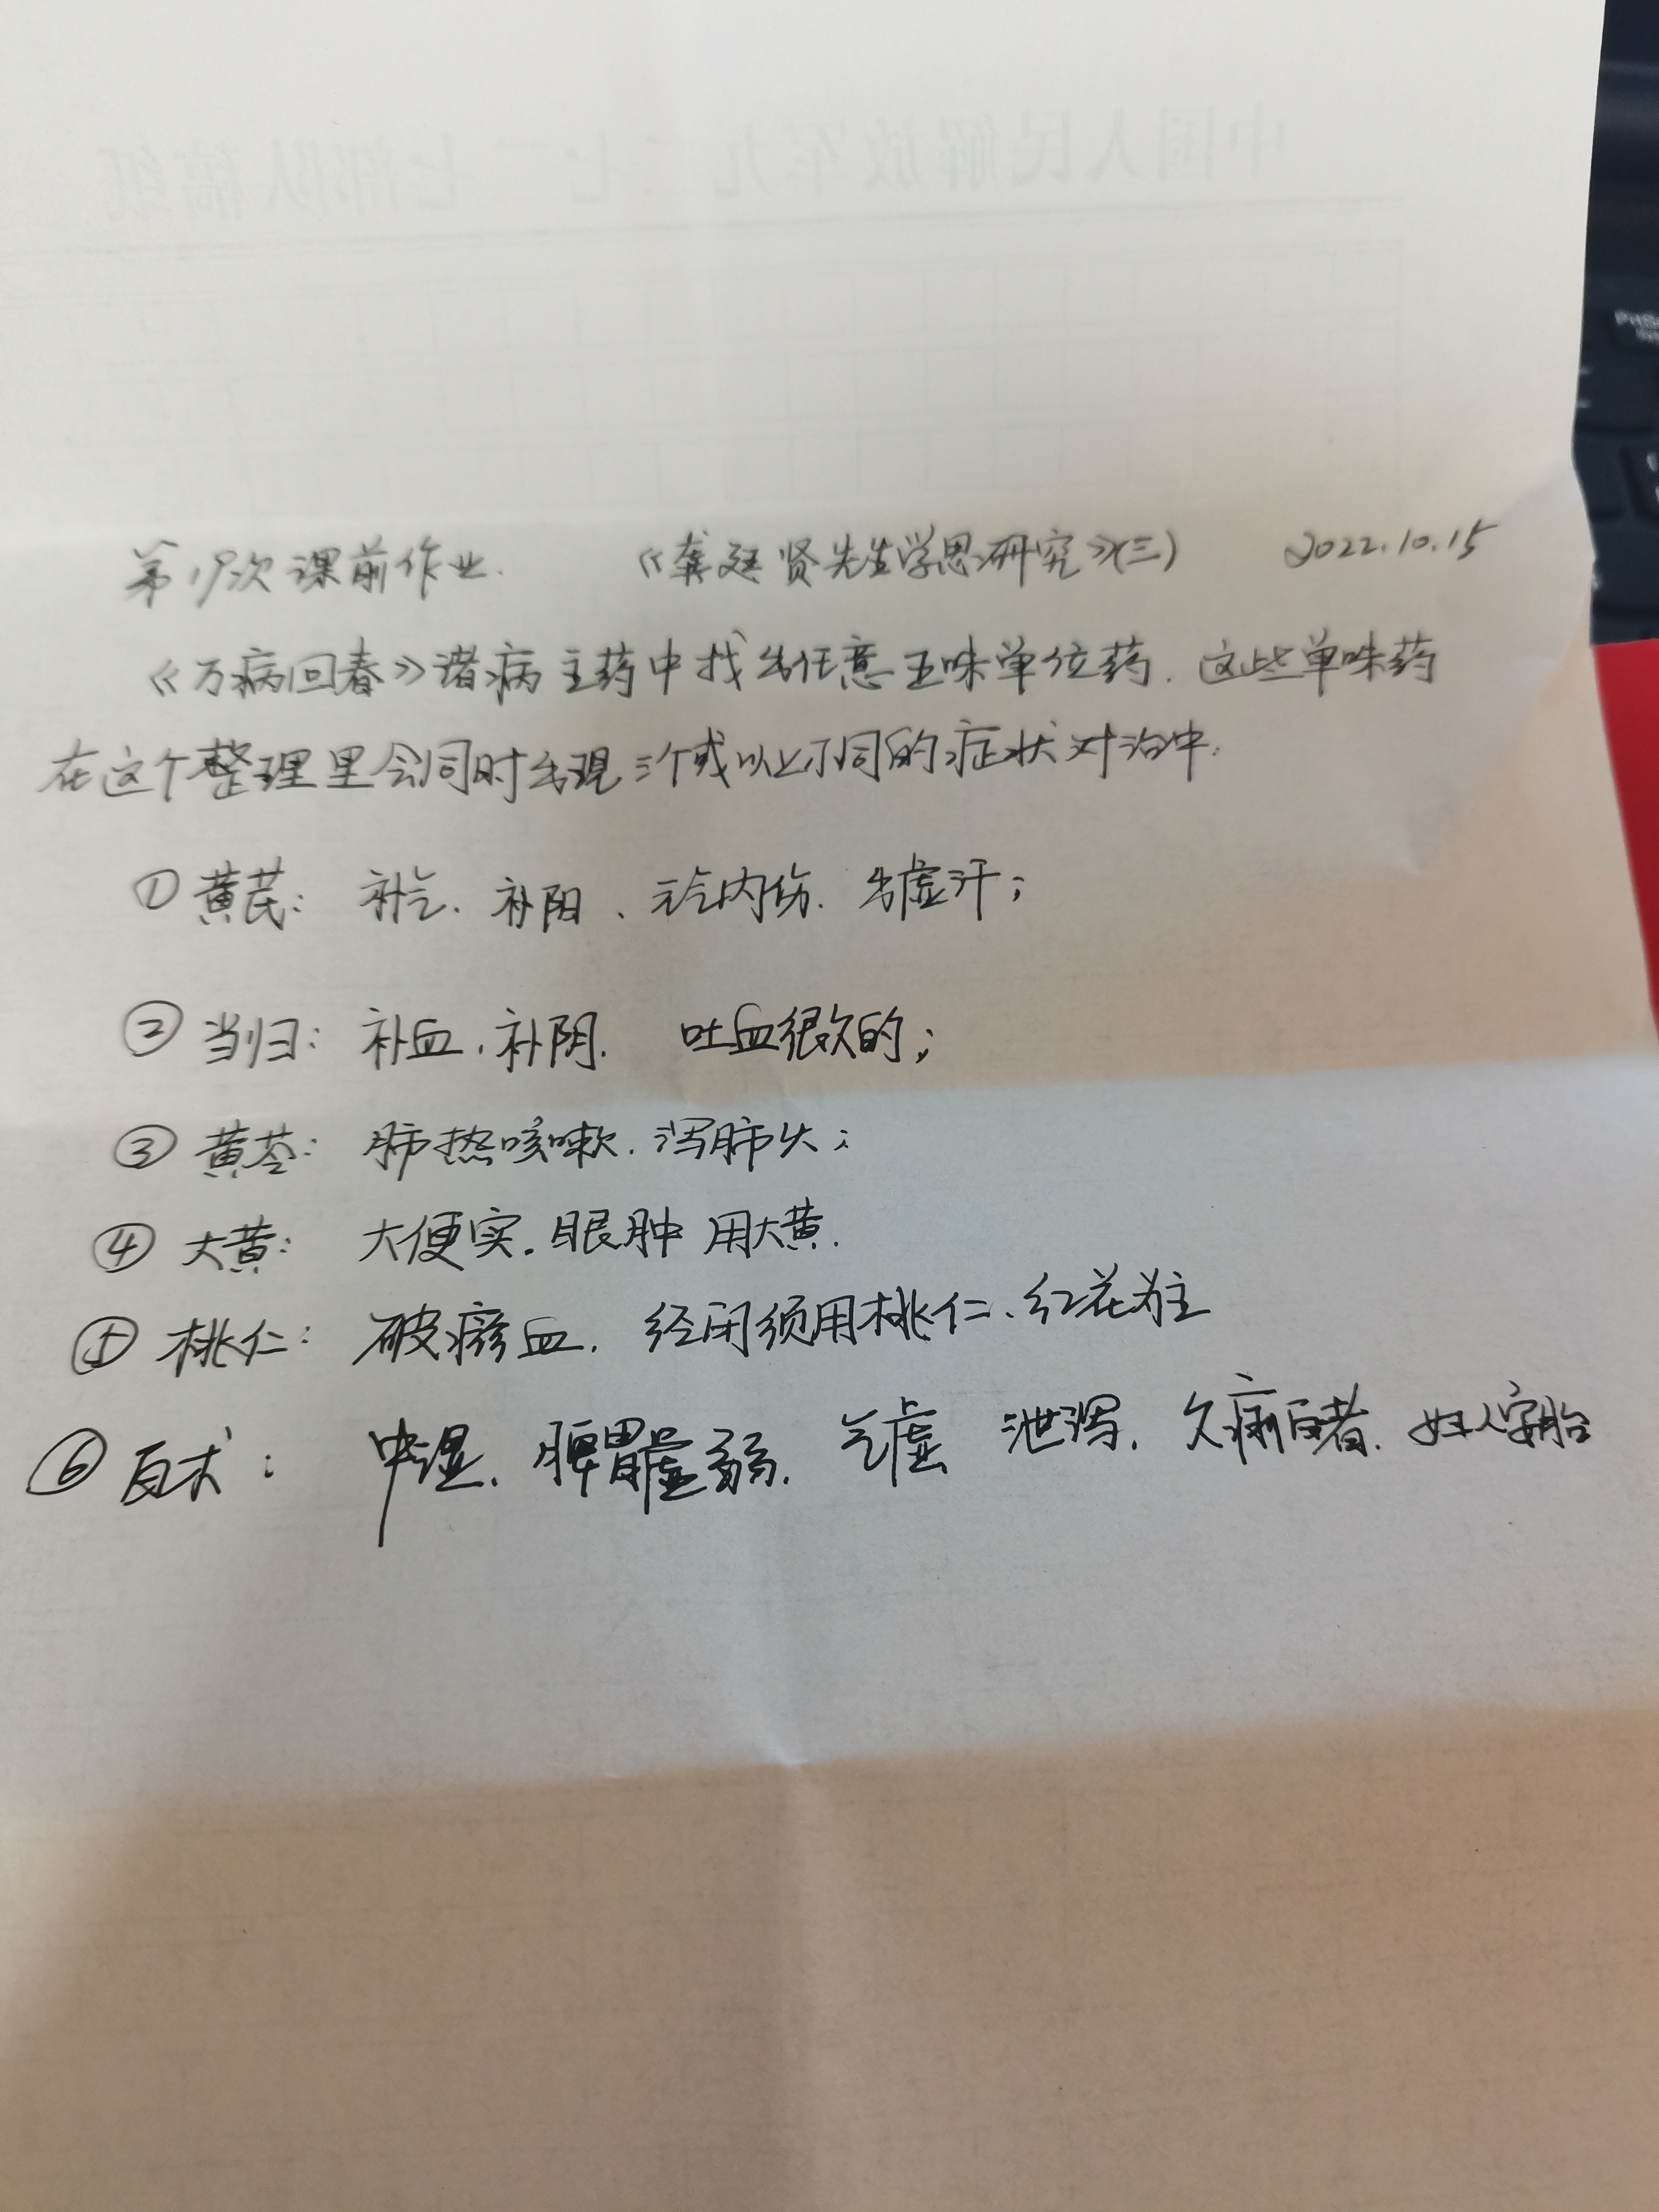 中国人民解放军九二七二七部队稿纸
第19次课前作业. 《龚廷贤先生学思研究》(三) 2022.10.15
《万病回春》诸病主药中找出任意五味单位药. 这些单味药
在这个整理里会同时出现三个或以上不同的症状对治中.
① 黄芪: 补气. 补阳、元气内伤. 出虚汗;
② 当归: 补血, 补阴. 吐血很久的;
③ 黄芩: 肺热咳嗽. 泻肺火;
④ 大黄: 大便实. 眼肿 用大黄.
⑤ 桃仁: 破瘀血. 经闭须用桃仁、红花为主
⑥ 白术: 中湿. 脾胃虚弱. 气虚 泄泻. 久痢白者. 妇人安胎
PrtSc